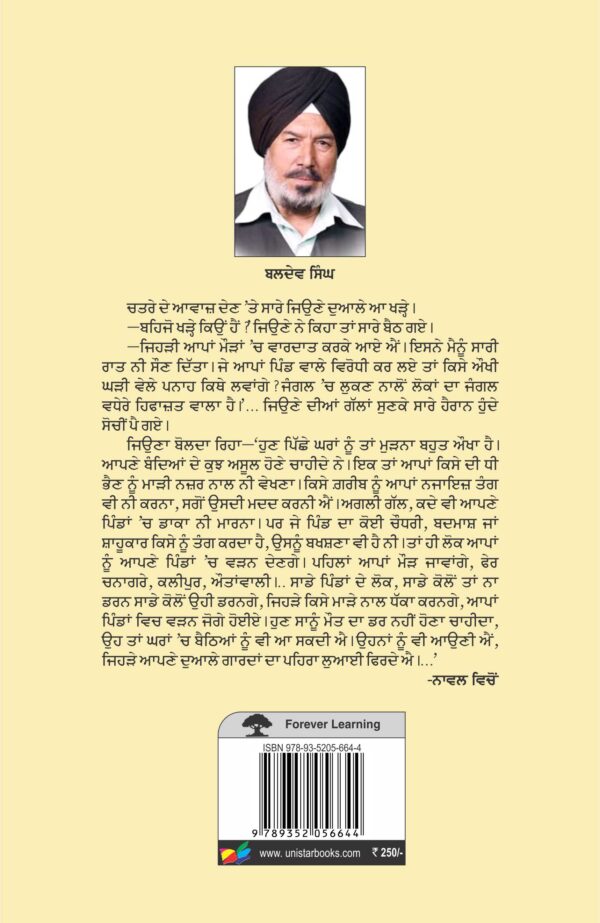 ਬਲਦੇਵ ਸਿੰਘ
ਚਤਰੇ ਦੇ ਆਵਾਜ਼ ਦੇਣ ’ਤੇ ਸਾਰੇ ਜਿਉਣੇ ਦੁਆਲੇ ਆ ਖੜ੍ਹੇ।
—ਬਹਿਜੋ ਖੜ੍ਹੇ ਕਿਉਂ ਹੈਂ ?’ ਜਿਉਣੇ ਨੇ ਕਿਹਾ ਤਾਂ ਸਾਰੇ ਬੈਠ ਗਏ।
—ਜਿਹੜੀ ਆਪਾਂ ਮੌੜਾਂ ’ਚ ਵਾਰਦਾਤ ਕਰਕੇ ਆਏ ਐਂ। ਇਸਨੇ ਮੈਨੂੰ ਸਾਰੀ
ਰਾਤ ਨੀ ਸੌਣ ਦਿੱਤਾ। ਜੇ ਆਪਾਂ ਪਿੰਡ ਵਾਲੇ ਵਿਰੋਧੀ ਕਰ ਲਏ ਤਾਂ ਕਿਸੇ ਔਖੀ
ਘੜੀ ਵੇਲੇ ਪਨਾਹ ਕਿਥੇ ਲਵਾਂਗੇ ? ਜੰਗਲ ’ਚ ਲੁਕਣ ਨਾਲੋਂ ਲੋਕਾਂ ਦਾ ਜੰਗਲ
ਵਧੇਰੇ ਹਿਫਾਜ਼ਤ ਵਾਲਾ ਹੈ।’... ਜਿਉਣੇ ਦੀਆਂ ਗੱਲਾਂ ਸੁਣਕੇ ਸਾਰੇ ਹੈਰਾਨ ਹੁੰਦੇ
ਸੋਚੀਂ ਪੈ ਗਏ।
ਜਿਉਣਾ ਬੋਲਦਾ ਰਿਹਾ—‘ਹੁਣ ਪਿੱਛੇ ਘਰਾਂ ਨੂੰ ਤਾਂ ਮੁੜਨਾ ਬਹੁਤ ਔਖਾ ਹੈ।
ਆਪਣੇ ਬੰਦਿਆਂ ਦੇ ਕੁਝ ਅਸੂਲ ਹੋਣੇ ਚਾਹੀਦੇ ਨੇ। ਇਕ ਤਾਂ ਆਪਾਂ ਕਿਸੇ ਦੀ ਧੀ
ਭੈਣ ਨੂੰ ਮਾੜੀ ਨਜ਼ਰ ਨਾਲ ਨੀ ਵੇਖਣਾ। ਕਿਸੇ ਗ਼ਰੀਬ ਨੂੰ ਆਪਾਂ ਨਜਾਇਜ਼ ਤੰਗ
ਵੀ ਨੀ ਕਰਨਾ, ਸਗੋਂ ਉਸਦੀ ਮਦਦ ਕਰਨੀ ਐਂ। ਅਗਲੀ ਗੱਲ, ਕਦੇ ਵੀ ਆਪਣੇ
ਪਿੰਡਾਂ ’ਚ ਡਾਕਾ ਨੀ ਮਾਰਨਾ। ਪਰ ਜੇ ਪਿੰਡ ਦਾ ਕੋਈ ਚੌਧਰੀ, ਬਦਮਾਸ਼ ਜਾਂ
ਸ਼ਾਹੂਕਾਰ ਕਿਸੇ ਨੂੰ ਤੰਗ ਕਰਦਾ ਹੈ, ਉਸਨੂੰ ਬਖਸ਼ਣਾ ਵੀ ਹੈ ਨੀ। ਤਾਂ ਹੀ ਲੋਕ ਆਪਾਂ
ਨੂੰ ਆਪਣੇ ਪਿੰਡਾਂ ’ਚ ਵੜਨ ਦੇਣਗੇ। ਪਹਿਲਾਂ ਆਪਾਂ ਮੌੜ ਜਾਵਾਂਗੇ, ਫੇਰ
ਚਨਾਗਰੇ, ਕਲੀਪੁਰ, ਔਤਾਂਵਾਲੀ।.. ਸਾਡੇ ਪਿੰਡਾਂ ਦੇ ਲੋਕ, ਸਾਡੇ ਕੋਲੋਂ ਤਾਂ ਨਾ
ਡਰਨ ਸਾਡੇ ਕੋਲੋਂ ਉਹੀ ਡਰਨਗੇ, ਜਿਹੜੇ ਕਿਸੇ ਮਾੜੇ ਨਾਲ ਧੱਕਾ ਕਰਨਗੇ, ਆਪਾਂ
ਪਿੰਡਾਂ ਵਿਚ ਵੜਨ ਜੋਗੇ ਹੋਈਏ। ਹੁਣ ਸਾਨੂੰ ਮੌਤ ਦਾ ਡਰ ਨਹੀਂ ਹੋਣਾ ਚਾਹੀਦਾ,
ਉਹ ਤਾਂ ਘਰਾਂ ’ਚ ਬੈਠਿਆਂ ਨੂੰ ਵੀ ਆ ਸਕਦੀ ਐ। ਉਹਨਾਂ ਨੂੰ ਵੀ ਆਉਣੀ ਐਂ,
ਜਿਹੜੇ ਆਪਣੇ ਦੁਆਲੇ ਗਾਰਦਾਂ ਦਾ ਪਹਿਰਾ ਲੁਆਈ ਫਿਰਦੇ ਐ।...’
-ਨਾਵਲ ਵਿਚੋਂ
Forever Learning
ISBN 978-93-5205-664-4
9 789352 056644
www. unistarbooks.com ₹ 250/-